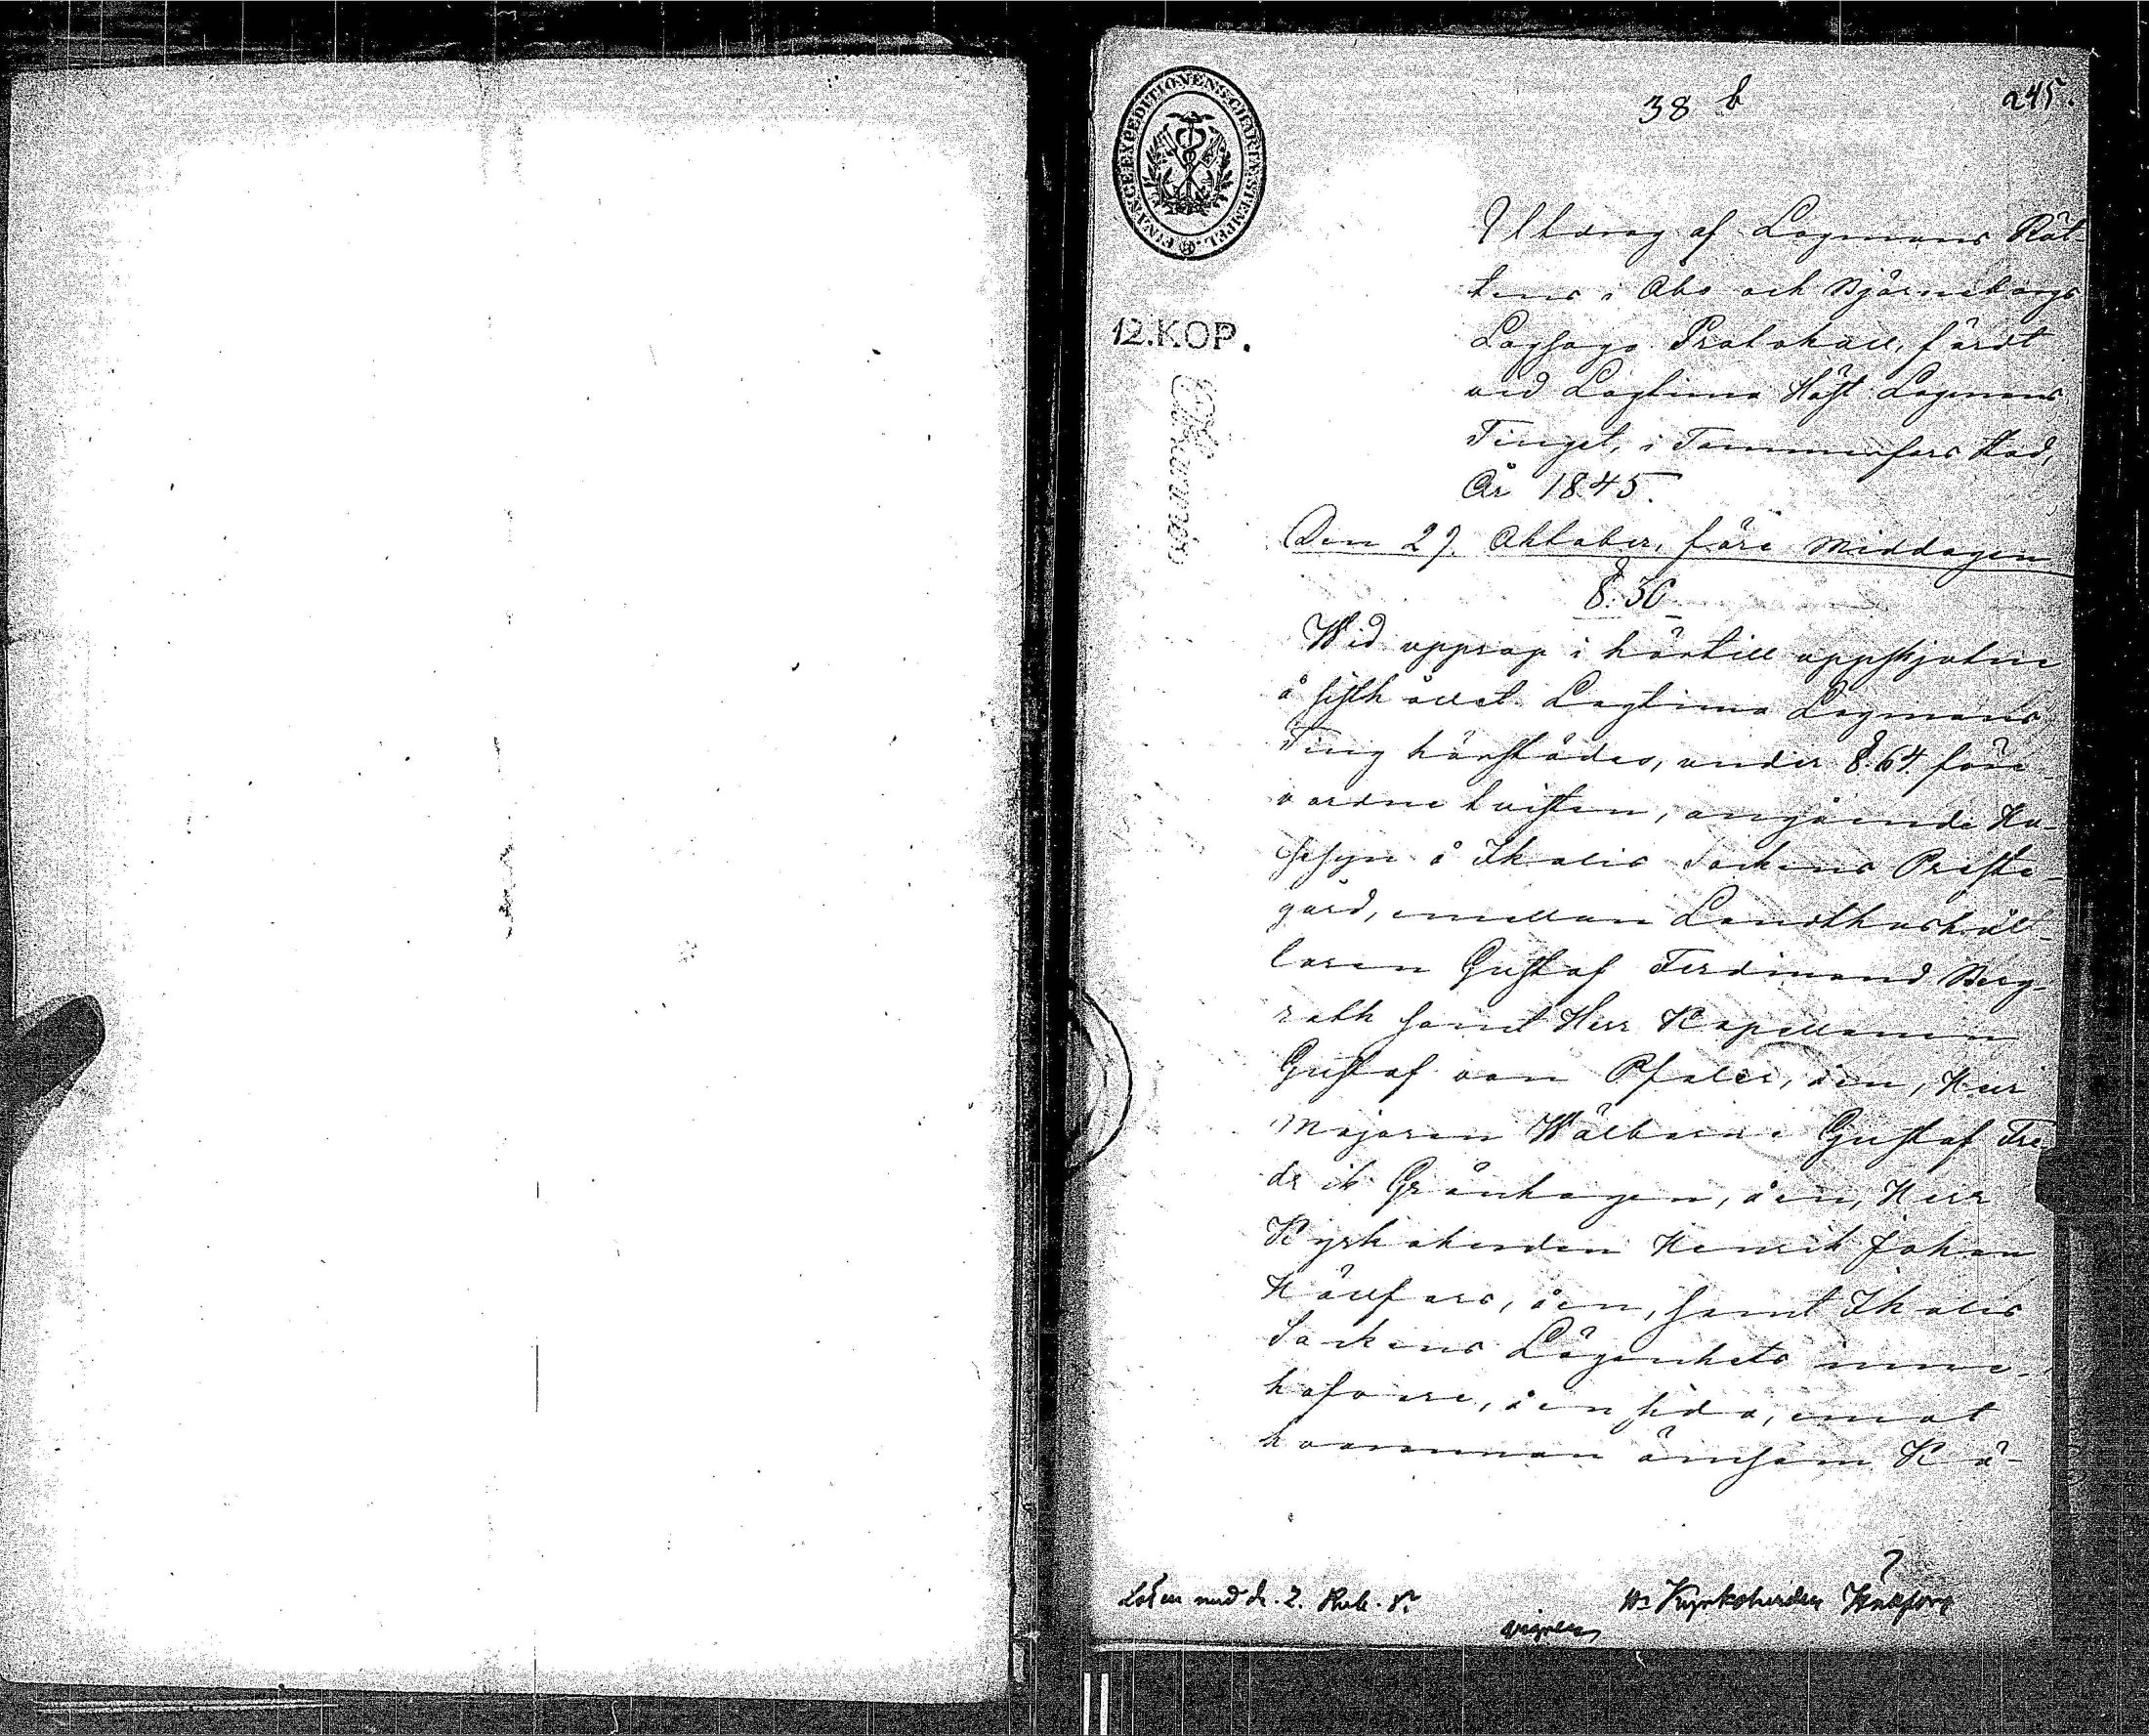 38 b
245.
FINANCE EXPEDITIONENS CHARTÆ STEMPEL.
12. KOP.
Utdrag af Lagmans Rät-
tens i Åbo och Björneborgs
Lagsaga Protokoll, fördt
vid Lagtima Höst Lagmans
Tinget, i Tammerfors stad,
År 1845.
Den 29. Oktober, före Middagen
§. 30
Wid upprop i härtill uppskjutne
å sisth ållet Lagtima Lagmans
Ting härstädes, under §. 64. före-
vordne tvisten, angående Hu-
sesyn å Ikalis Sockens Preste-
gård, emellan Landthushål-
laren Gustaf Ferdinand Berg-
roth samt Herr Kapellanen
Gustaf von Pfaler, å en, Herr
Majoren Wälborne Gustaf Fre-
drik Grönhagen, å en, Herr
Kyrkoherden Henrik Johan
Hällfors, å en, samt Ikalis
Sockens Lägenhets inne-
hafvare, å en sida, emot
hvarannan ömsom Kä-
Lösen med dr. 2. Rub. Sr
Hr Kyrkoherden Hällfors